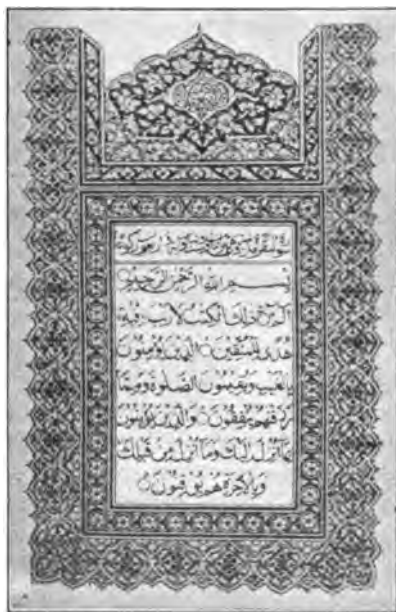 بِسْمِ اللهِ الرَّحْمٰنِ الرَّحِيْمِ
الٓمّٓ ذٰلِكَ الْكِتٰبُ لَا رَيْبَ فِيْهِ
هُدًى لِّلْمُتَّقِيْنَ ○ الَّذِيْنَ يُؤْمِنُوْنَ
بِالْغَيْبِ وَيُقِيْمُوْنَ الصَّلٰوةَ وَمِمَّا
رَزَقْنٰهُمْ يُنْفِقُوْنَ ○ وَالَّذِيْنَ يُؤْمِنُوْنَ
بِمَآ اُنْزِلَ اِلَيْكَ وَمَآ اُنْزِلَ مِنْ قَبْلِكَ
وَبِالْاٰخِرَةِ هُمْ يُوْقِنُوْنَ ○